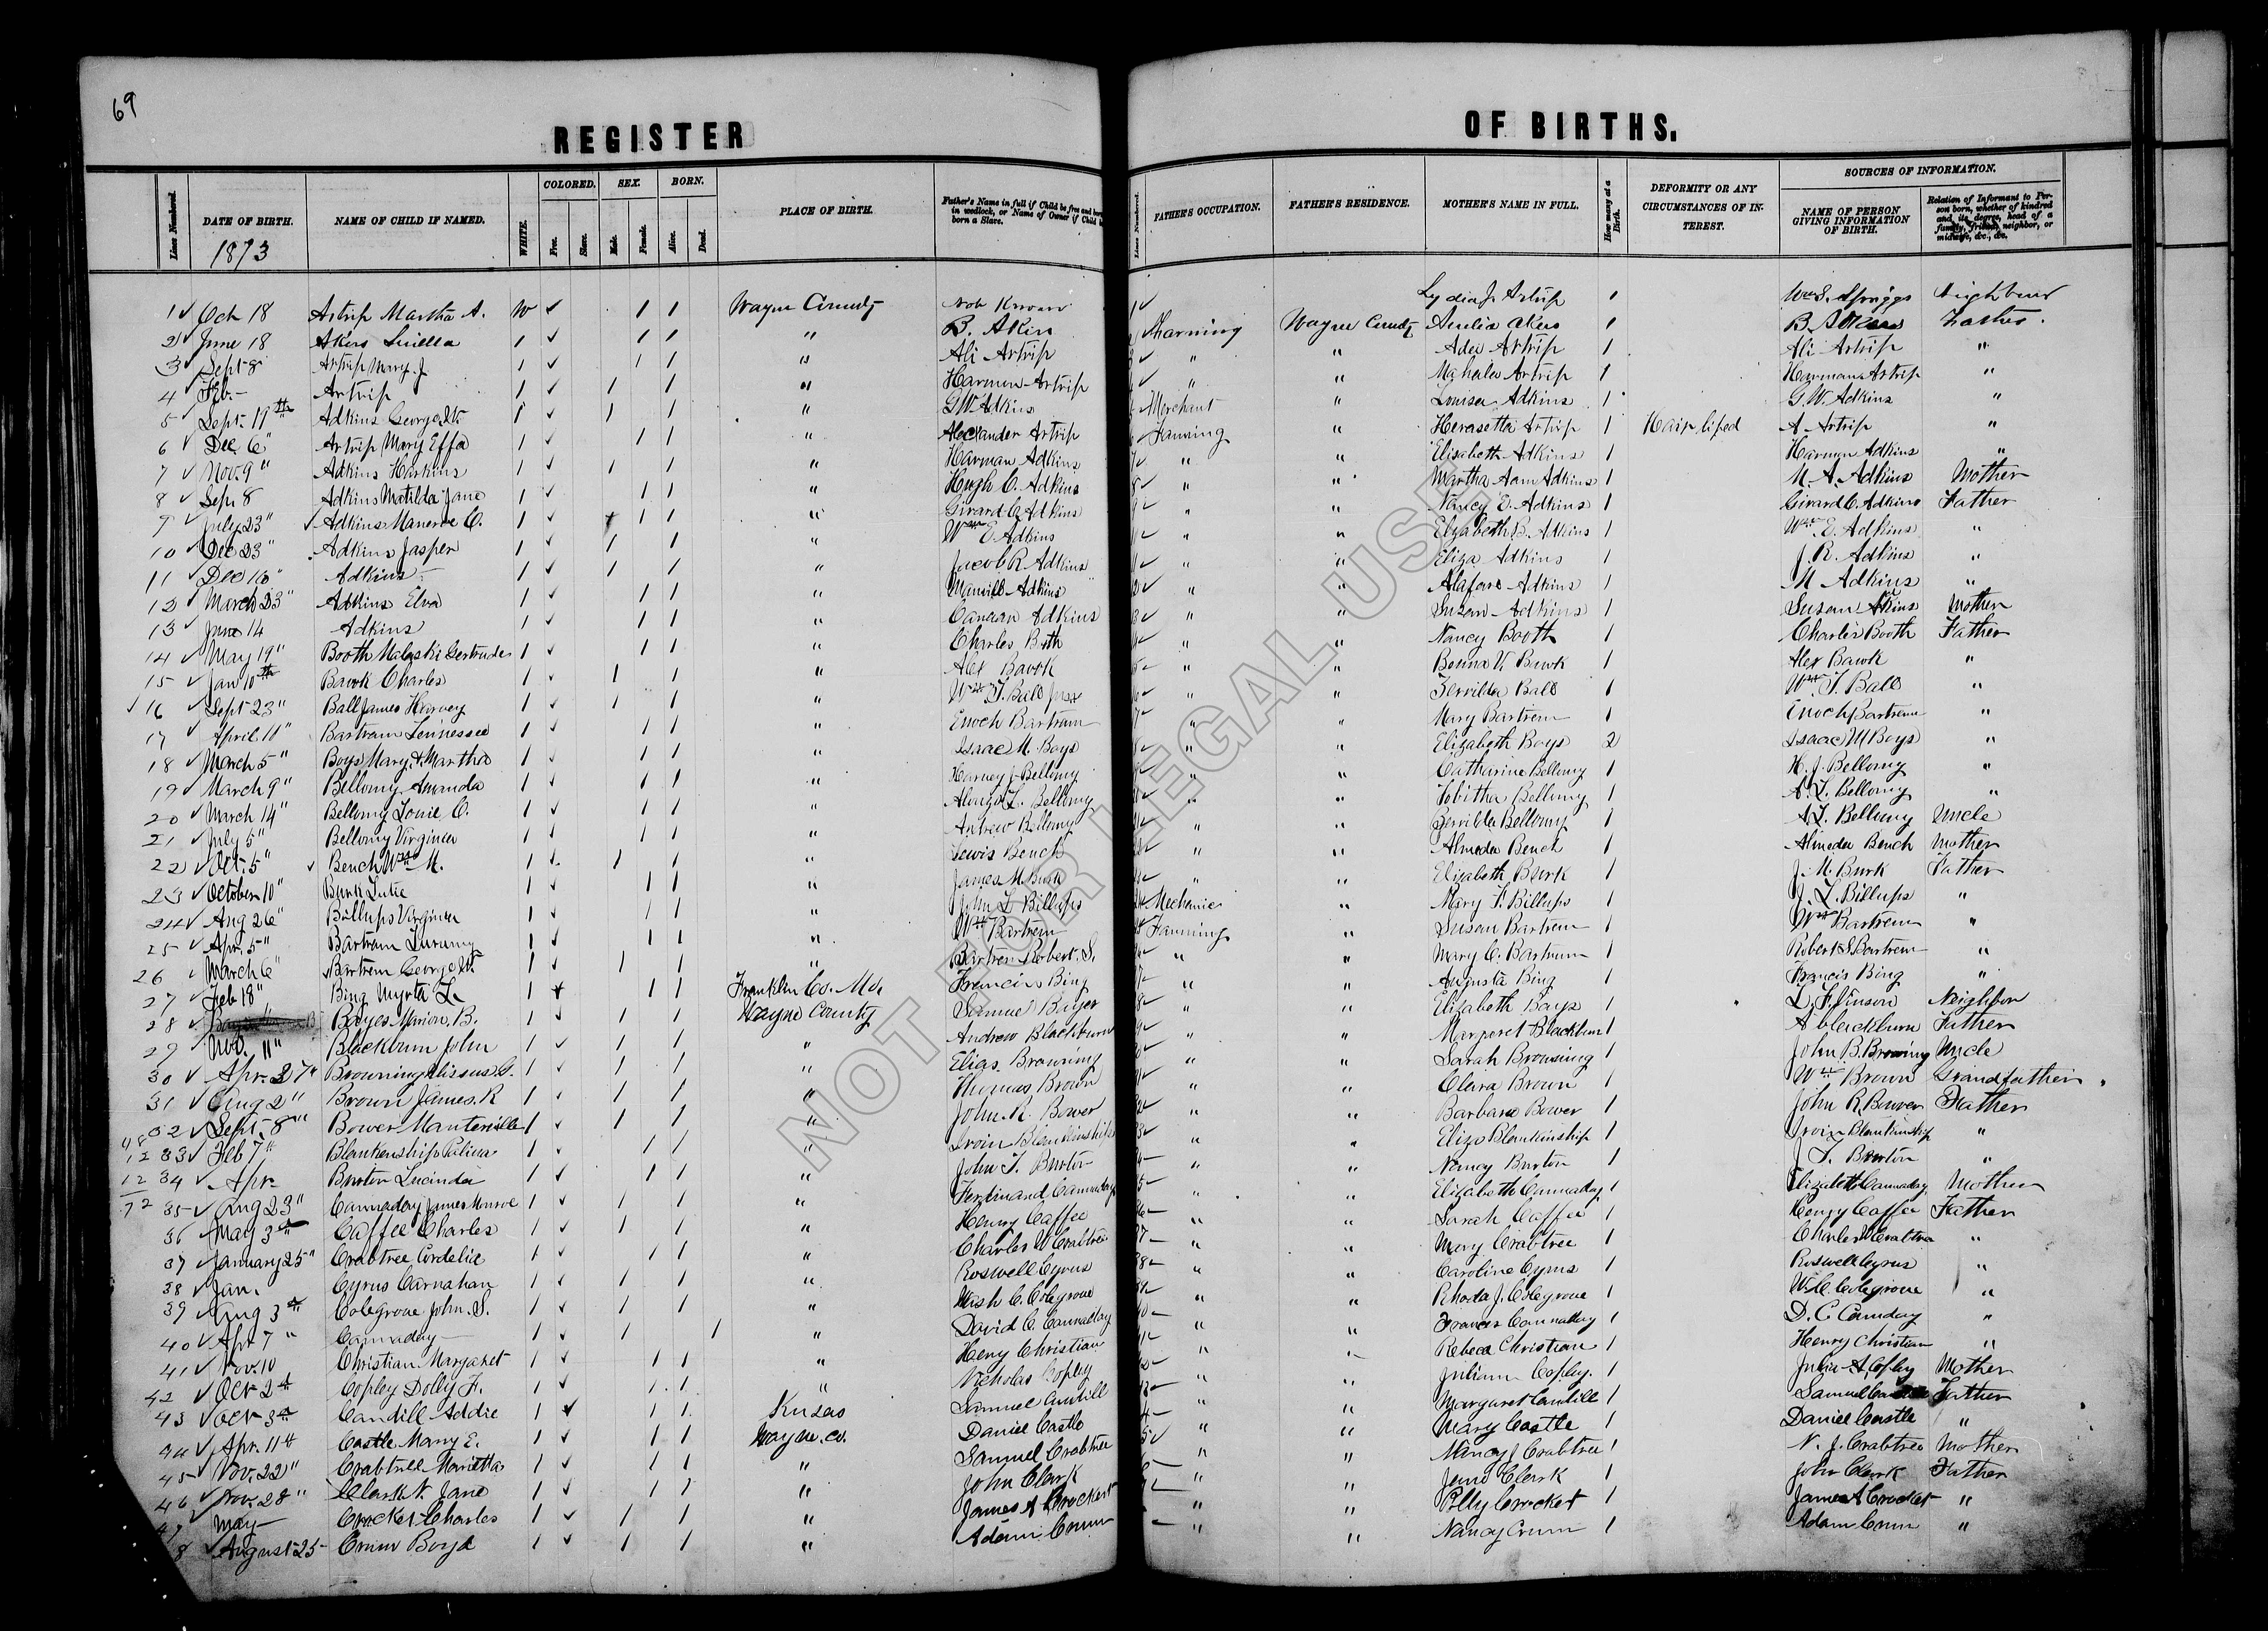 69
REGISTER OF BIRTHS.
Lines Numbered. DATE OF BIRTH. NAME OF CHILD IF NAMED. WHITE. COLORED. Free. Slave. SEX. Male. Female. BORN. Alive. Dead. PLACE OF BIRTH. Father's Name in full if Child be free and born in wedlock, or Name of Owner if Child be born a Slave. Lines Numbered. FATHER'S OCCUPATION. FATHER'S RESIDENCE. MOTHER'S NAME IN FULL. How many at a Birth. DEFORMITY OR ANY CIRCUMSTANCES OF INTEREST. SOURCES OF INFORMATION. NAME OF PERSON GIVING INFORMATION OF BIRTH. Relation of Informant to Person born, whether of kindred and its degree, head of a family, friend, neighbor, or midwife, &c., &c.
1873
1 ✓ Oct 18 Artrip Martha A. W ✓ 1 1 Wayne County Not Known 1 ✓ Lydia J. Artrip 1 Wm S. Spriggs Neighbour
2 ✓ June 18 Akers Luella 1 ✓ 1 1 " B. Akers Farming Wayne County Amelia Akers 1 B. Akers Father.
3 ✓ Sept 8 Artrip Mary J 1 ✓ 1 1 " Ali Artrip " " Ada Artrip 1 Ali Artrip "
4 ✓ Feb. - Artrip 1 ✓ 1 1 " Harmon Artrip " " Mahala Artrip 1 Harmon Artrip "
5 ✓ Sept. 19th Adkins George W. 1 ✓ 1 1 " G W Adkins Merchant " Louisa Adkins 1 G. W. Adkins "
6 ✓ Dec. 6" Artrip Mary Effa 1 ✓ 1 1 " Alexander Artrip Farming " Herasetta Artrip 1 Hair liped A Artrip "
7 ✓ Nov. 9" Adkins Harkins 1 ✓ 1 1 " Harman Adkins " " Elisabeth Adkins 1 Harmon Adkins "
8 ✓ Sep. 8 Adkins Matilda Jane 1 ✓ 1 1 " Hugh C. Adkins " " Martha Ann Adkins 1 M. A. Adkins Mother
9 ✓ July 23" Adkins Manerva C. 1 ✓ 1 1 " Girard C Adkins " " Nancy E. Adkins 1 Girard C. Adkins Father
10 ✓ Dec 23" Adkins Jasper 1 ✓ 1 1 " Wm E Adkins " " Elizabeth B. Adkins 1 Wm E. Adkins "
11 ✓ Dec 16" Adkins - 1 ✓ 1 1 " Jacob R. Adkins " " Eliza Adkins 1 J. R. Adkins "
12 ✓ March 23" Adkins Elva 1 ✓ 1 1 " Manvill Adkins " " Adafare Adkins 1 M Adkins "
13 ✓ June 14 Adkins 1 ✓ 1 1 " Canaan Adkins " " Susan Adkins 1 Susan Adkins Mother
14 ✓ May 19" Booth Malaski Gertrude 1 ✓ 1 1 " Charles Booth " " Nancy Booth 1 Charles Booth Father
15 ✓ Jan 10th Bawk Charles 1 ✓ 1 1 " Alex Bawk " " Bawk 1 Alex Bawk "
✓ 16 ✓ Sept 23" Ball James Harvey 1 ✓ 1 1 " Wm T. Ball " " Zerrilda Ball 1 Wm T. Ball "
17 ✓ April 11" Bartram Tennessee 1 ✓ 1 1 " Enoch Bartram " " Mary Bartrem 1 Enoch Bartrem "
18 ✓ March 5" Boys Mary & Martha 1 ✓ 1 1 " Isaac M. Boys " " Elizabeth Boys 2 Isaac M Boys "
19 ✓ March 9" Bellomy Amanda 1 ✓ 1 1 " Harvey J. Bellomy " " Catharine Bellomy 1 H. J. Bellomy "
20 ✓ March 14" Bellomy Louie C. 1 ✓ 1 1 " Alonzo L. Bellomy " " Tobitha Bellomy 1 A. L. Bellomy "
21 ✓ July 5" Bellomy Virginia 1 ✓ 1 1 " Andrew Bellomy " " Zerrilda Bellomy 1 A. L. Bellomy Uncle
22 ✓ Oct. 5" ✓ Bench Wm M. 1 ✓ 1 1 " Lewis Bench " " Almeda Bench 1 Almeda Bench Mother
23 ✓ October 10" Burk Lutie 1 ✓ 1 1 " James M Burk " " Elizabeth Burk 1 J. M. Burk Father
24 ✓ Aug 26" Billups Virginia 1 ✓ 1 1 " John L Billups Mechanic " Mary F. Billups 1 J. L. Billups "
25 ✓ Apr. 5" Bartram Lurany 1 ✓ 1 1 " Wm Bartrem Farming " Susan Bartrem 1 Wm Bartrem "
26 ✓ March 6" Bartrem George W. 1 ✓ 1 1 " Bartrem Robert. S. " " Mary C. Bartrum 1 Robert S Bartrem "
27 ✓ Feb 18" Bing Myrta L. 1 ✓ 1 1 Franklin Co. Mo. Francis Bing " " Augusta Bing 1 Francis Bing "
28 ✓ Bayes Marion, B. 1 ✓ 1 1 Wayne County Samuel Bayes " " Elizabeth Bays 1 L. F. Vinson Neighbor
29 ✓ Nov. 11" Blackburn John 1 ✓ 1 1 " Andrew Blackburn " " Margaret Blackburn 1 A blackburn Father
30 ✓ Apr. 27" Browning Ulissus G. 1 ✓ 1 1 " Elias Browning " " Sarah Browning 1 John B. Browning Uncle
31 ✓ Aug 2" Brown James R 1 ✓ 1 1 " Thomas Brown " " Clara Brown 1 Wm Brown Grandfather
32 ✓ Sept. 8" Bower Manterville 1 ✓ 1 1 " John R. Bower " " Barbara Bower 1 John R Bower Father
33 ✓ Feb 7th Blankenship Palina 1 ✓ 1 1 " Irvin Blankinship " " Eliza Blankinship 1 Irvin Blankinship "
34 ✓ Apr. Burton Lucinda 1 ✓ 1 1 " John T. Burton " " Nancy Burton 1 J. T. Burton "
35 ✓ Aug 23" Cannaday James Monroe 1 ✓ 1 1 " Ferdinand Cannaday " " Elizabeth Cannaday 1 Elizabeth Cannaday Mother
36 ✓ May 3rd Caffee Charles 1 ✓ 1 1 " Henry Caffee " " Sarah Caffee 1 Henry Caffee Father
37 ✓ January 25" Crabtree Cordelia 1 ✓ 1 1 " Charles W Crabtree " " Mary Crabtree 1 Charles W Crabtree "
38 ✓ Jan. Cyrus Carnahan 1 ✓ 1 1 " Roswell Cyrus " " Caroline Cyrus 1 Roswell Cyrus "
39 ✓ Aug 3rd Colegrove John. S. 1 ✓ 1 1 " Wash C. Colegrove " " Rhoda J. Colegrove 1 W. C. Colegrove "
40 ✓ Apr 7" Cannaday 1 ✓ 1 1 " David C. Cannaday " " Frances Cannaday 1 D. C Canaday "
41 ✓ Nov. 10 Christian Margaret 1 ✓ 1 1 " Heny Christian " " Rebeca Christian 1 Henry Christian "
42 ✓ Oct 2d Copley Dolly F. 1 ✓ 1 1 " Nicholas Copley " " Juliann Copley. 1 Julia A Copley Mother
43 ✓ Oct 3rd Caudill Addie 1 ✓ 1 1 Kusas Samuel Caudill " " Margaret Caudill 1 Samuel Father
44 ✓ Apr. 11th Castle Mary E. 1 ✓ 1 1 Wayne. co. Daniel Castle " " Mary Castle 1 Daniel Castle "
45 ✓ Nov. 22" Crabtree Marietta 1 ✓ 1 1 " Samuel Crabtree " " Nancy J Crabtree 1 N. J. Crabtree Mother
46 ✓ Nov. 28" Clark N. Jane 1 ✓ 1 1 " John Clark " " Jane Clark 1 John Clark Father
47 May Crocket Charles 1 ✓ 1 1 " James A Crocket " " Polly Crocket 1 James A Crocket "
8 ✓ August 25 Crum Boyd 1 ✓ 1 1 " Adam Crum " " Nancy Crum 1 Adam Crum "
NOT FOR LEGAL USE